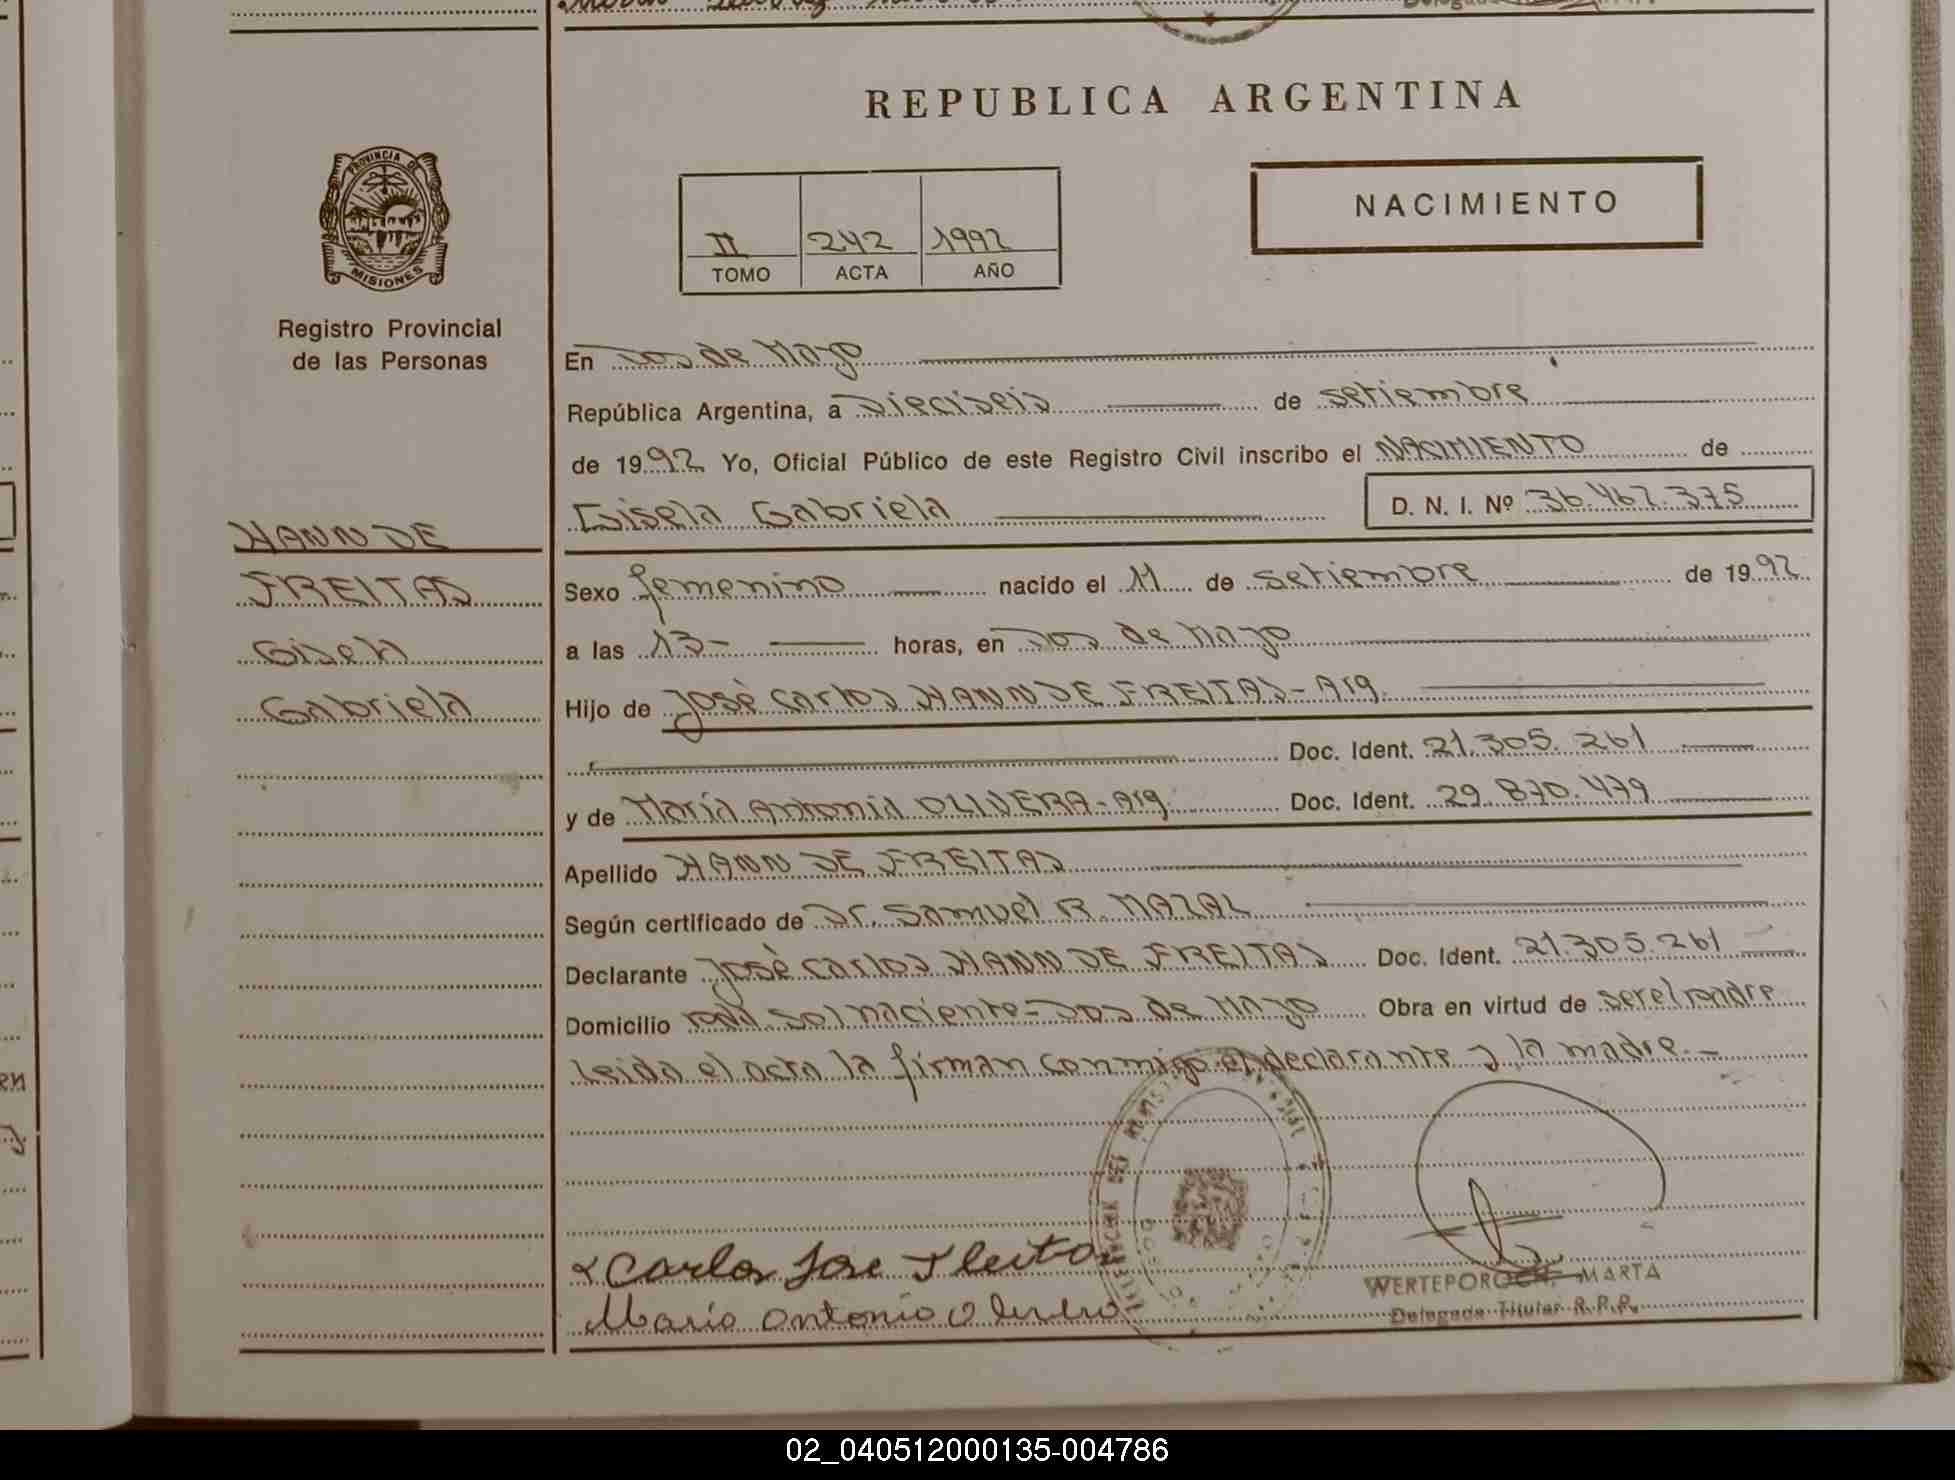 REPUBLICA ARGENTINA
PROVINCIA DE
MISIONES
Registro Provincial
de las Personas
II 242 1992
TOMO ACTA AÑO
NACIMIENTO
HANN DE
FREITAS
Gisela
Gabriela
En Dos de Mayo
República Argentina, a Dieciseis de setiembre
de 1992 Yo, Oficial Público de este Registro Civil inscribo el NACIMIENTO de
Gisela Gabriela D. N. I. Nº 36.467.375
Sexo femenino nacido el 11 de setiembre de 1992
a las 13- horas, en Dos de Mayo
Hijo de José Carlos HANN DE FREITAS - Arg.
Doc. Ident. 21.305.261
y de María Antonia OLIVERA - Arg. Doc. Ident. 29.870.479
Apellido HANN DE FREITAS
Según certificado de Dr. Samuel R. MAZAL
Declarante José Carlos HANN DE FREITAS Doc. Ident. 21.305.261
Domicilio sol naciente - Dos de Mayo Obra en virtud de ser el padre
Leida el acta la firman conmigo el declarante y la madre.-
Carlos Jose Fleita
Maria Antonia Olivera
WERTEPOROCH MARTA
Delegada Titular R.P.P.
02_040512000135-004786